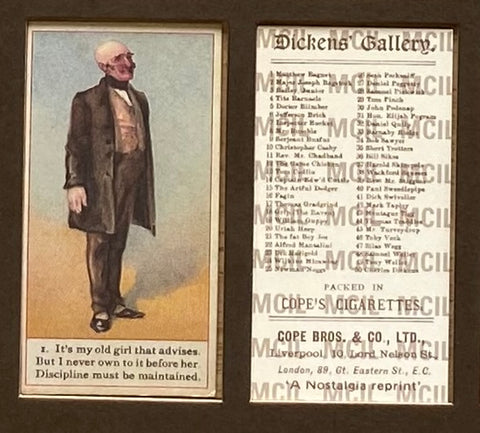 1. It's my old girl that advises.
But I never own to it before her
Discipline must be maintained.
Dickens' Gallery.
1 Matthew Bagnet
2 Major Joseph Bagstock
3 Bailey Junior
4 Tite Barnacle
5 Doctor Blimber
6 Jefferson Brick
7 Inspector Bucket
8 Mr. Bumble
9 Serjeant Buzfuz
10 Christopher Casby
11 Rev. Mr. Chadband
12 The Game Chicken
13 Tom
14 Captain Edwd. Cuttle
15 The Artful Dodger
16 Fagin
17 Thomas Gradgrind
18
19 William Guppy
20 Uriah Heep
21 The fat Boy Joe
22 Alfred Mantalini
23 Dr. Marigold
24 Wilkins Micawber
25 Newman Noggs
26 Seth Pecksniff
27 Daniel Peggotty
28 Samuel Pickwick
29 Tom Pinch
30 John Podsnap
31 Hon. Elijah Pogram
32 Daniel Quilp
33 Barnaby Rudge
34 Bob Sawyer
35 Trotters
36 Bill Sikes
37 Harold Skimpole
38 Wackford Squeers
39 Rev. Mr. Stiggins
40 Paul Sweedlepipe
41 Dick Swiveller
42 Mark Tapley
43 Montague Tigg
44 Thomas Traddles
45 Mr. Turveydrop
46 Toby Veck
47 Silas Wegg
48 Samuel Weller
49 Tony Weller
50 Charles Dickens
PACKED IN
COPE'S CIGARETTES
COPE BROS. & CO., LTD.,
Liverpool, 10, Lord Nelson St.,
London, 89, Gt. Eastern St., E.C.
'A Nostalgia reprint'
MCIL MCIL MCIL